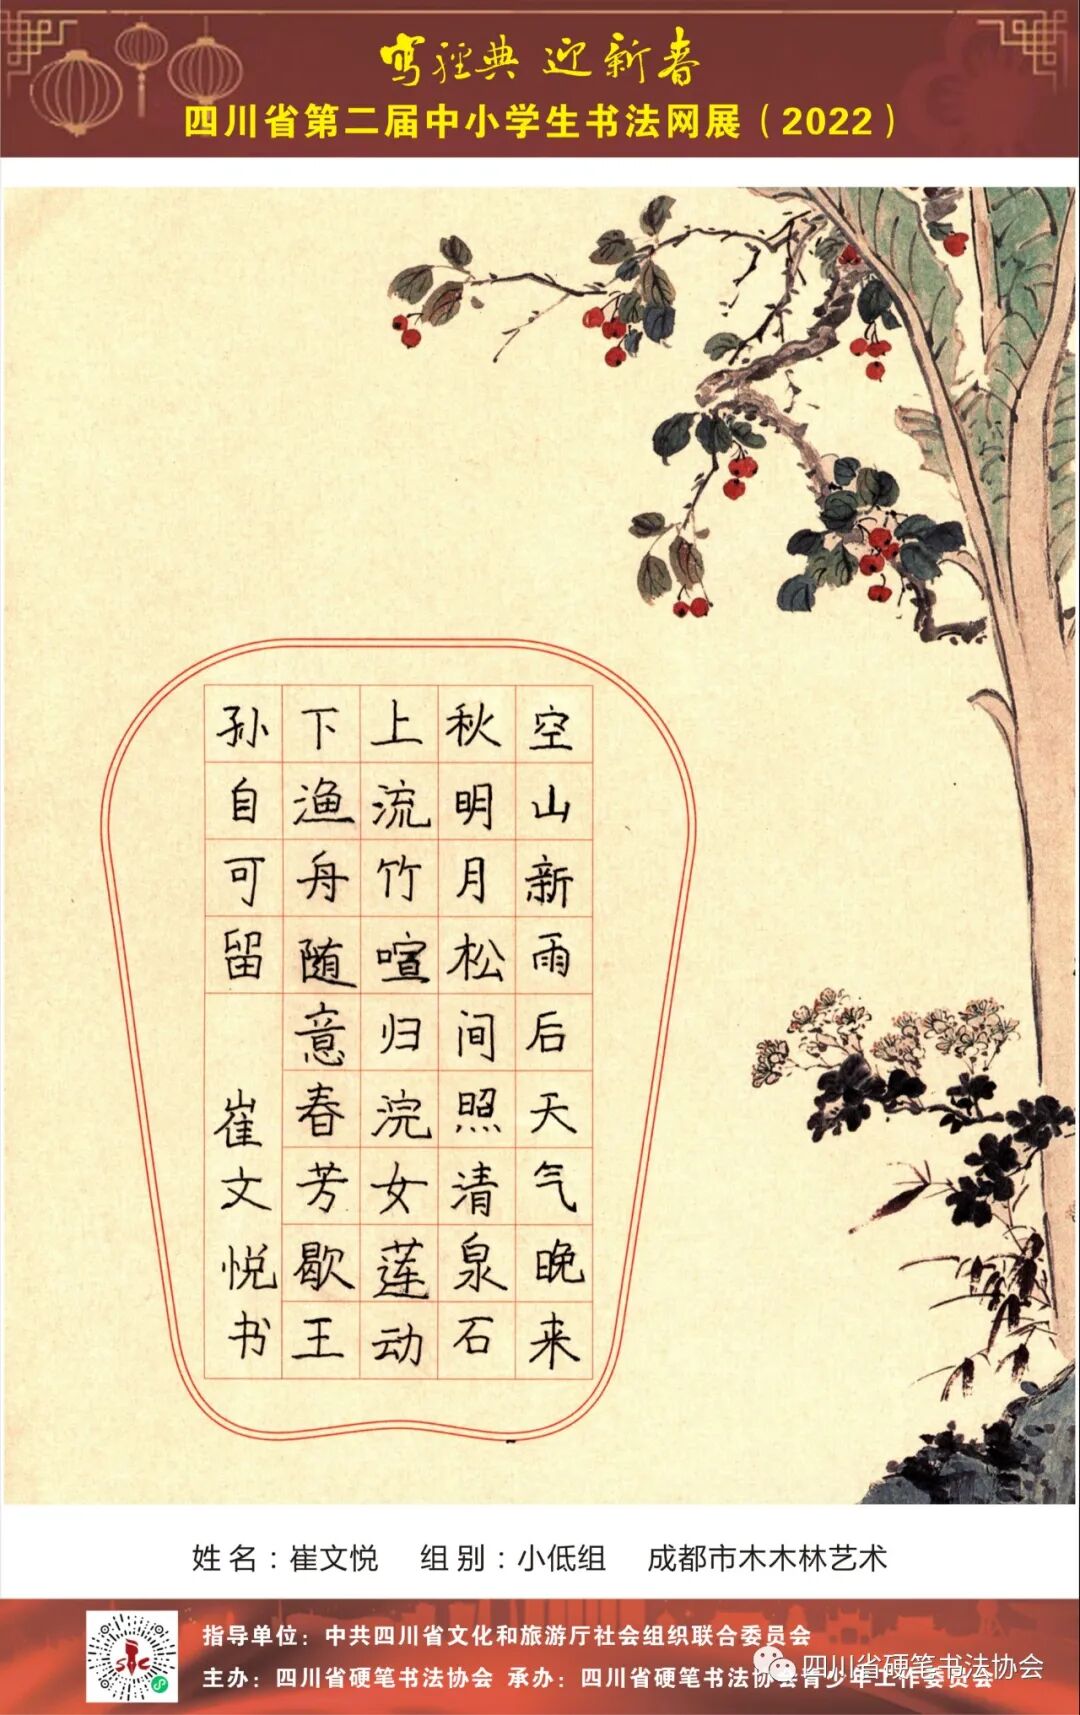 写经典 迎新春
四川省第二届中小学生书法网展（2022）
空山新雨后天气晚来
秋明月松间照清泉石
上流竹喧归浣女莲动
下渔舟随意春芳歇王
孙自可留
崔文悦书
姓名：崔文悦 组别：小低组 成都市木木林艺术
指导单位：中共四川省文化和旅游厅社会组织联合委员会
主办：四川省硬笔书法协会 承办：四川省硬笔书法协会青少年工作委员会
四川省硬笔书法协会